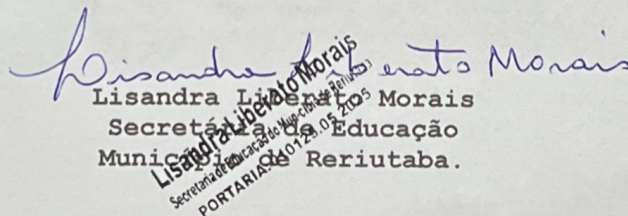 Lisandra Liberato Morais
Lisandra Liberato Morais
Secretária da Educação
Município de Reriutaba.
Lisandra Liberato Morais
Secretaria de Educação do Município de Reriutaba
PORTARIA